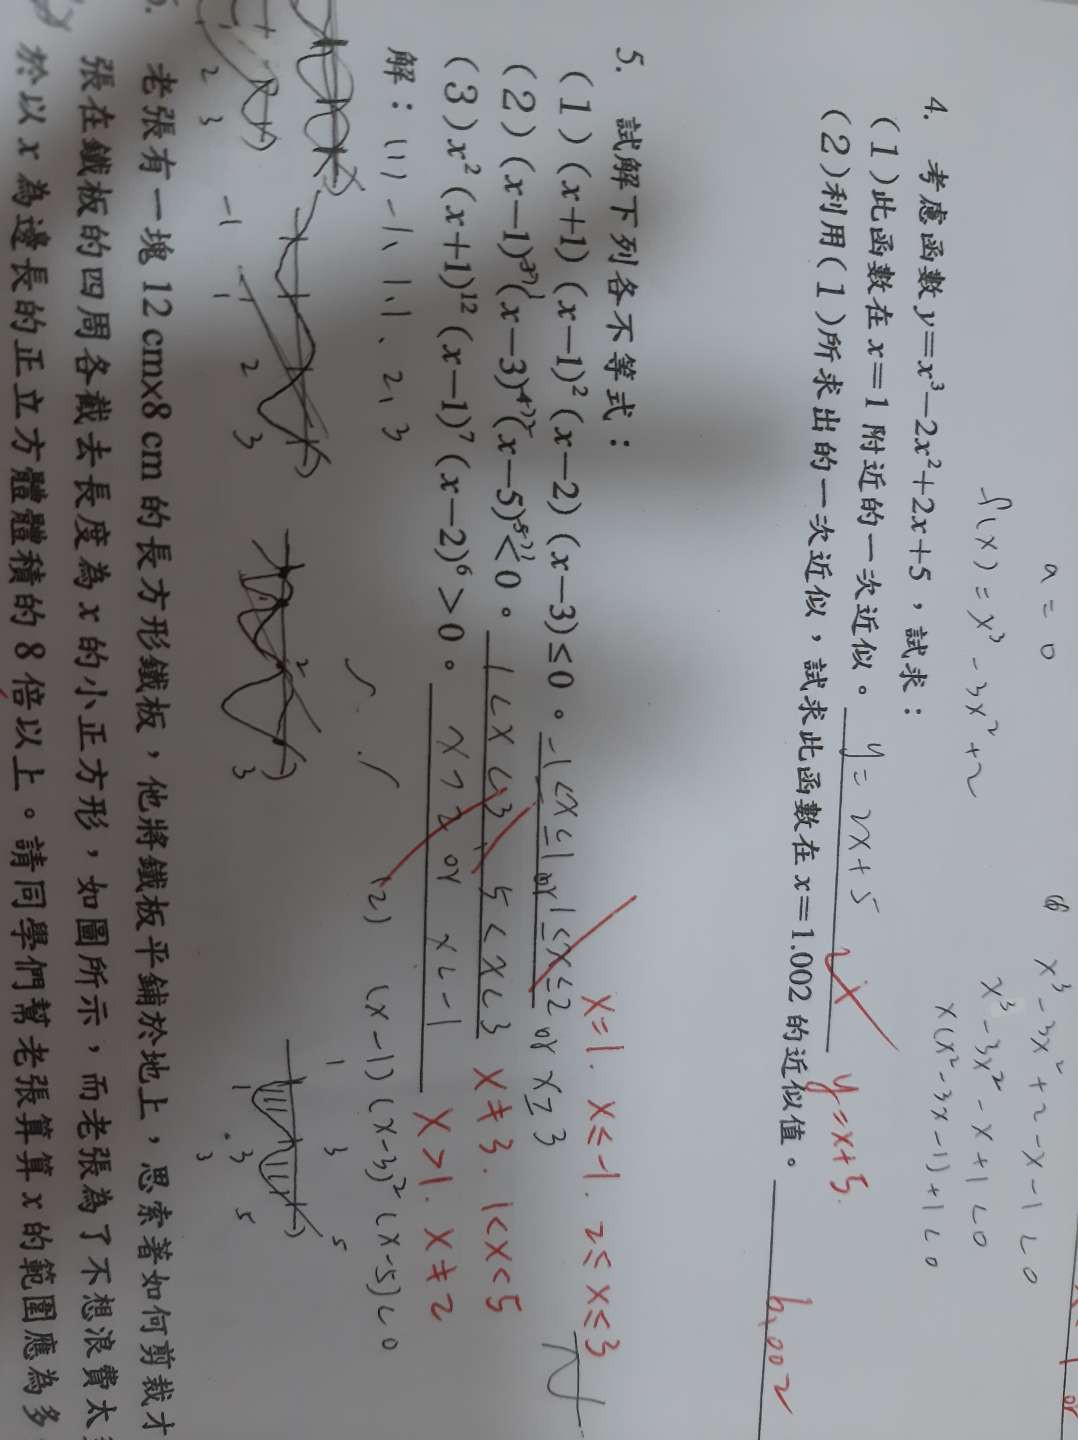 a = 0
f(x) = x³ - 3x² + 2
x³ - 3x² + 2 - x - 1 < 0
x³ - 3x² - x + 1 < 0
x(x² - 3x - 1) + 1 < 0
4. 考慮函數 y=x³−2x²+2x+5，試求：
(1)此函數在 x=1 附近的一次近似。 y = 2x + 5 y = x + 5.
(2)利用(1)所求出的一次近似，試求此函數在 x=1.002 的近似值。 6.002
5. 試解下列各不等式：
(1) (x+1) (x−1)² (x−2) (x−3)≤0。 -1<x≤1 or 1≤x≤2 or x≥3 x=1. x≤-1. 2≤x≤3
(2) (x−1)³⁷(x−3)⁴²(x−5)⁵³<0。 1<x<3, 5<x<3 x≠3. 1<x<5
(3) x²(x+1)¹²(x−1)⁷(x−2)⁶>0。 x>2 or x<-1 x>1. x≠2
解：(1) -1、1、1、2、3
(2) (x-1)(x-3)²(x-5)<0
1 3 5
-1 1 2 3
2
3
1 3 5
2 3
老張有一塊 12 cm×8 cm 的長方形鐵板，他將鐵板平鋪於地上，思索著如何剪裁才
張在鐵板的四周各截去長度為 x 的小正方形，如圖所示，而老張為了不想浪費太
於以 x 為邊長的正立方體體積的 8 倍以上。請同學們幫老張算算 x 的範圍應為多